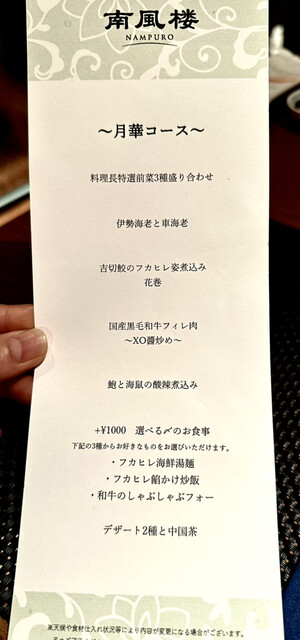 南風楼
NAMPURO
～月華コース～
料理長特選前菜3種盛り合わせ
伊勢海老と車海老
吉切鮫のフカヒレ姿煮込み
花巻
国産黒毛和牛フィレ肉
～XO醬炒め～
鮑と海鼠の酸辣煮込み
+¥1000　選べる〆のお食事
下記の3種からお好きなものをお選びいただけます。
・フカヒレ海鮮湯麺
・フカヒレ餡かけ炒飯
・和牛のしゃぶしゃぶフォー
デザート2種と中国茶
※天候や食材仕入れ状況等により内容が変更になる場合がございます。